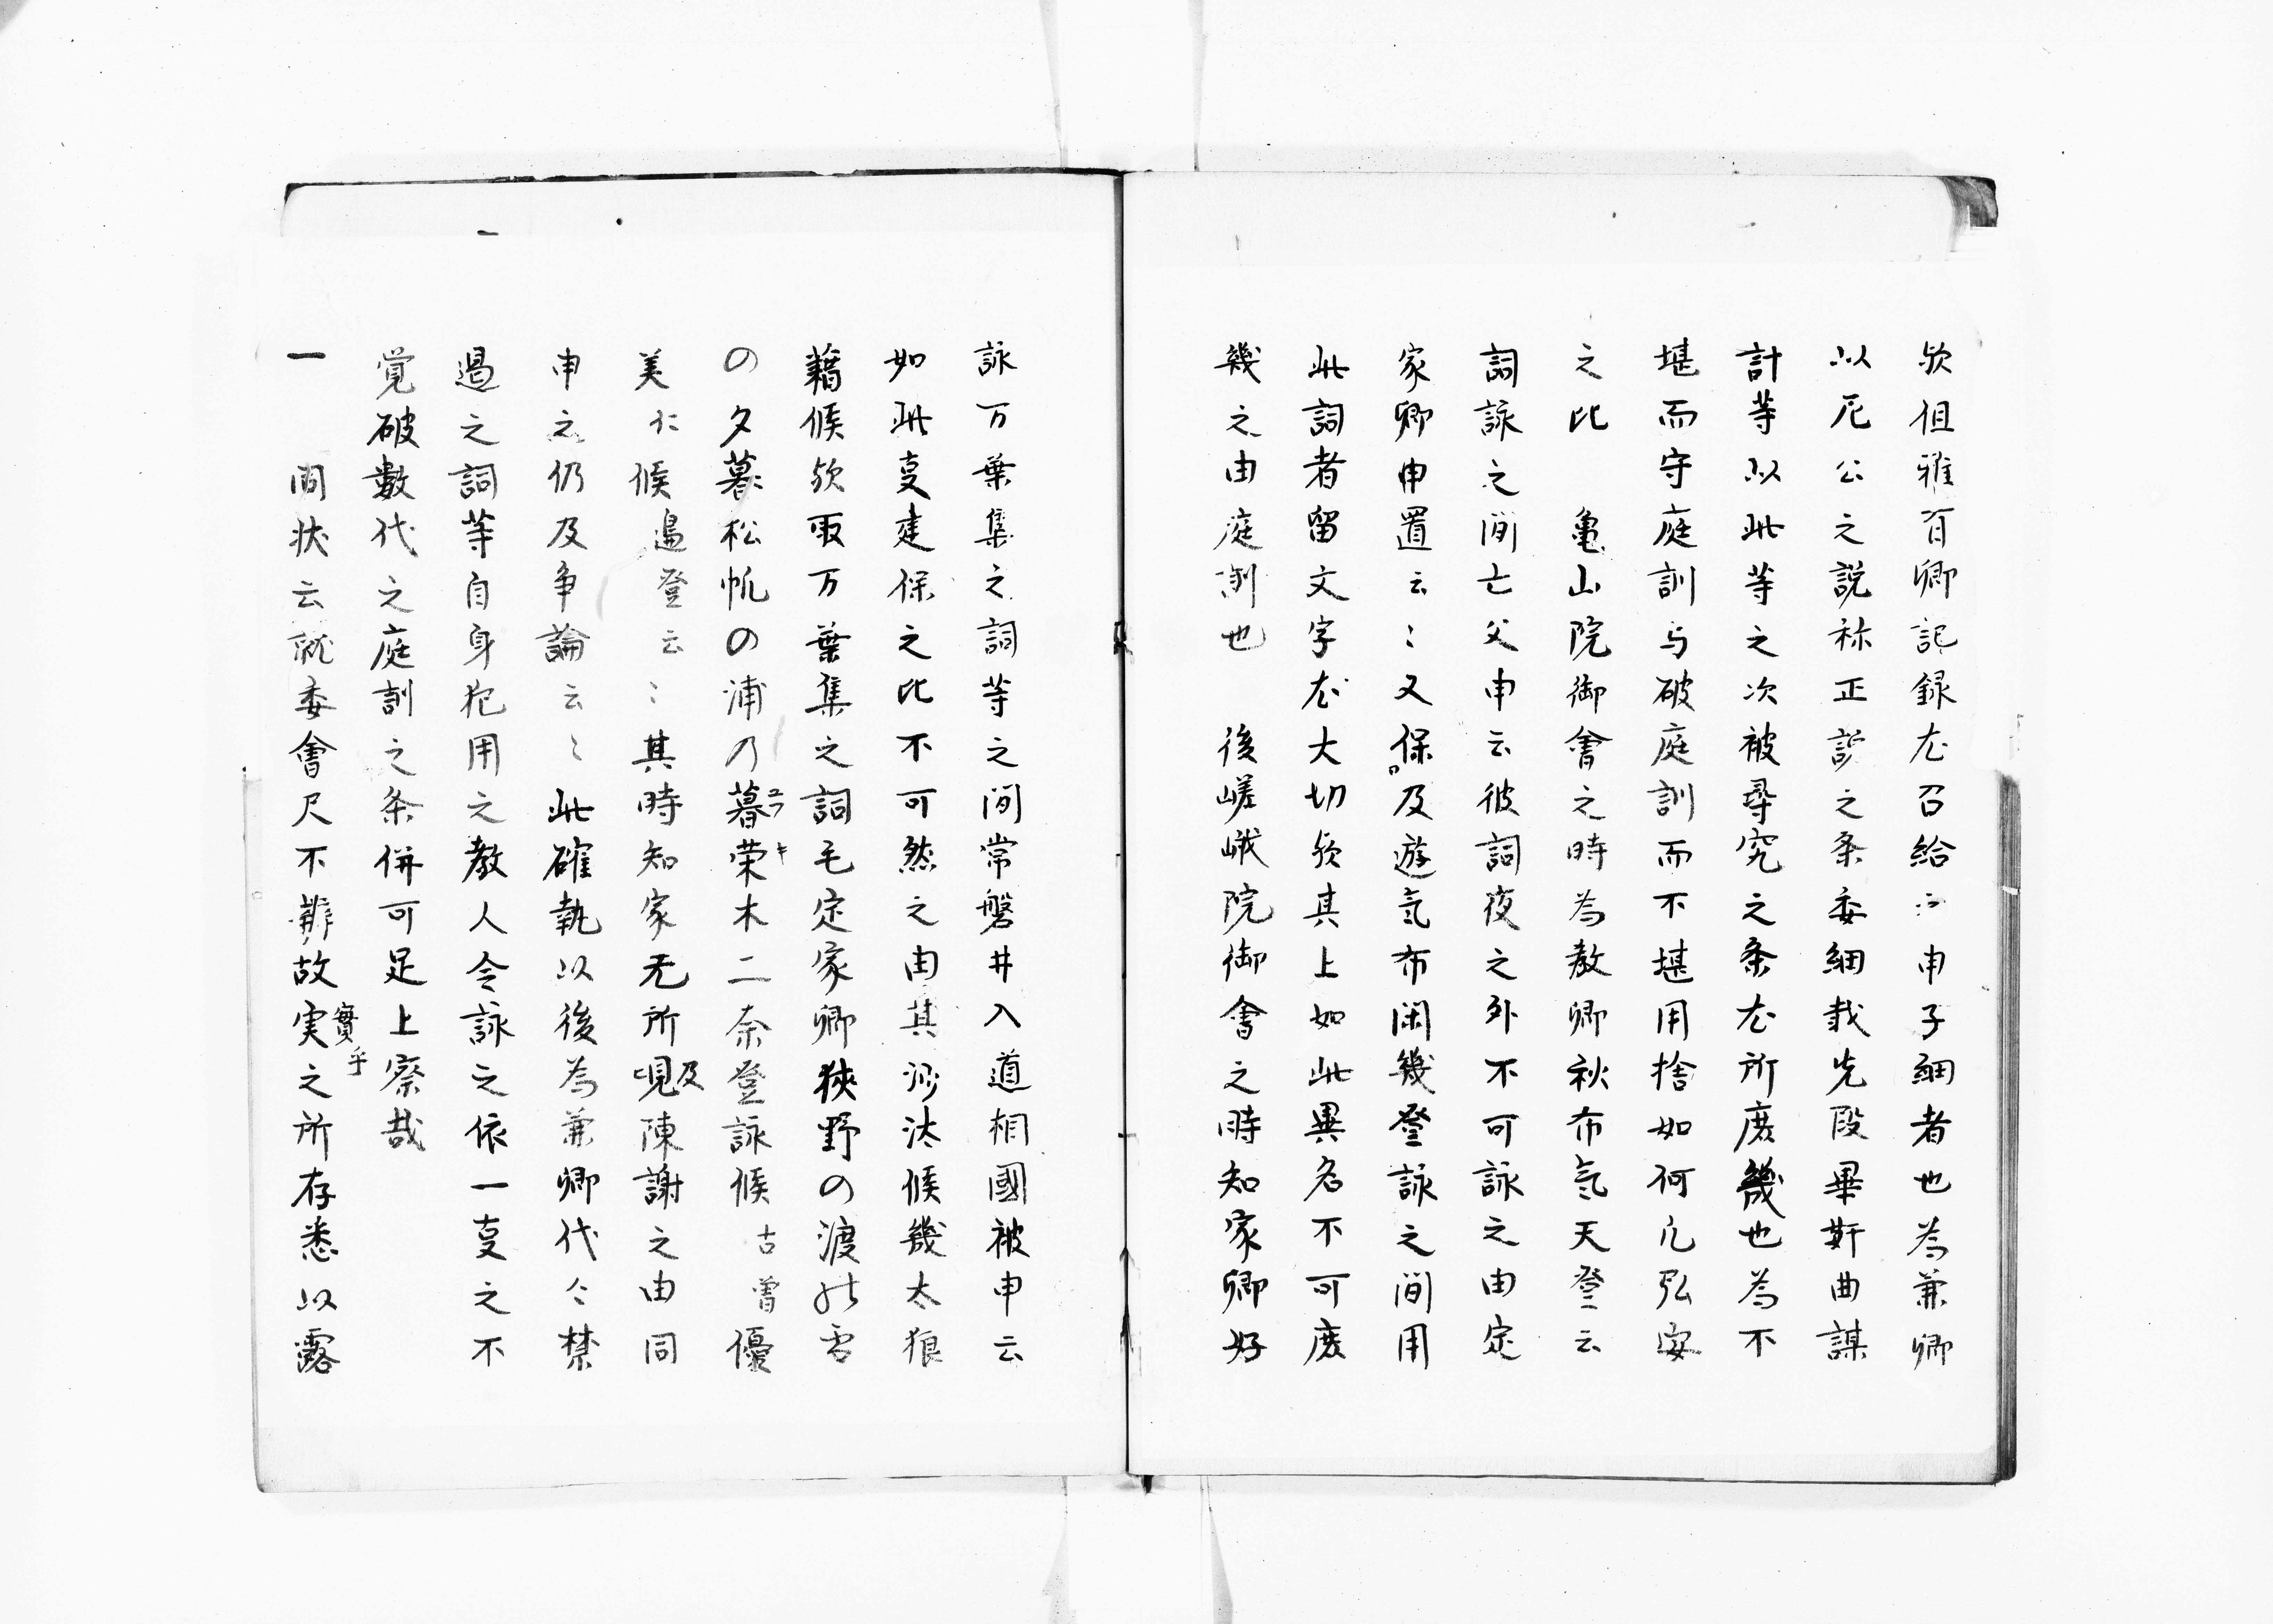 欤但雅有卿記録尤召給之申子細者也為兼卿
以尼公之説称正説之条委細載先段畢姧曲謀
計等以此等之次被尋究之条尤所庶幾也為不
堪而守庭訓与破庭訓而不堪用捨如何凡弘安
之比　亀山院御會之時為教卿秋布気天登云
詞詠之間亡父申云彼詞夜之外不可詠之由定
家卿申置云〻又保及遊気布閑幾登詠之間用
此詞者留文字尤大切欤其上如此異名不可庶
幾之由庭訓也　後嵯峨院御會之時知家卿好
詠万葉集之詞等之間常磐井入道相國被申云
如此叓建保之比不可然之由其沙汰候幾太狼
藉候欤取万葉集之詞毛定家卿狭野の渡能雪
の夕暮松帆の浦乃暮ユフ荣キ木二奈登詠候古曽優
美仁候邉登云〻其時知家无所及陳謝之由同
申之仍及争論云〻此確執以後為兼卿代々禁
過之詞等自身犯用之教人令詠之依一叓之不
覚破數代之庭訓之条併可足上察哉
一　問状云就委會尺不辨故実實乎之所存悉以露